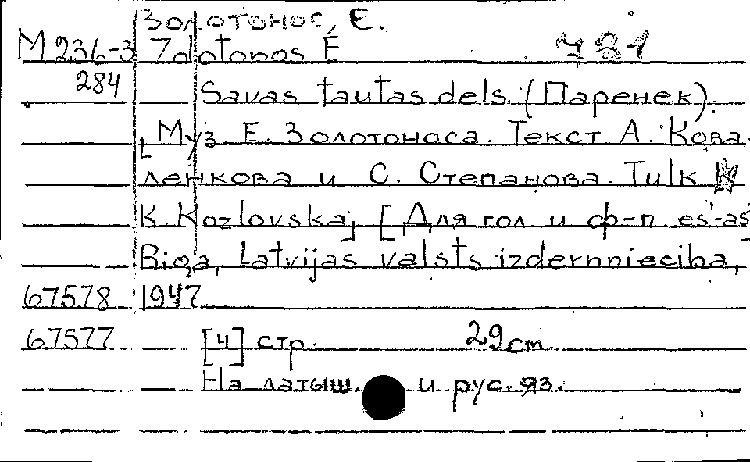 Золотонос, Е.
М 236-3 Zolotonos E 781
284 Savas tautas dels. (Паренек).
[Муз Е. Золотоноса. Текст А. Кова-
ленкова и С. Степанова. Tulk
K. Kozlovska] [Для гол и ф-п es-as
Riga, Latvijas valsts izdernnieciba,
67578 1947
67577 [4] стр. 29 cm
На латыш. и рус. яз.